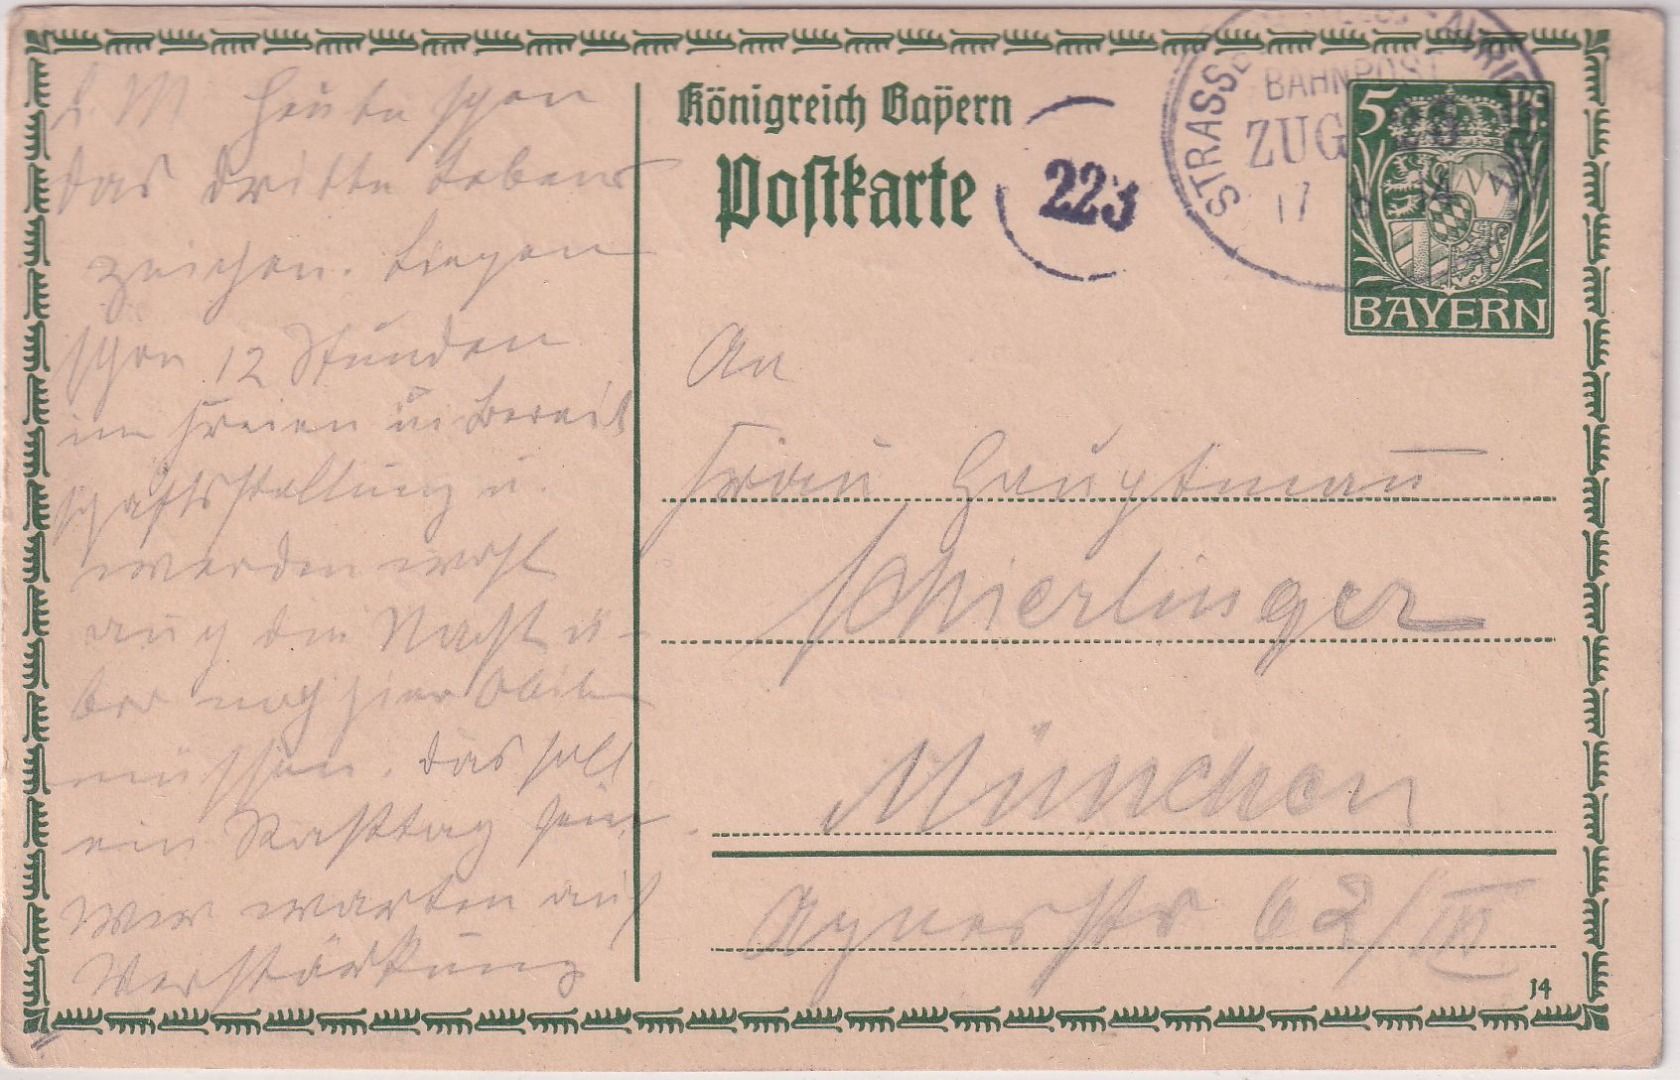 L. M. Heute schon
das dritte Lebens
zeichen. Liegen
schon 12 Stunden
im Freien in Bereit
schaftsstellung u.
werden wohl
auch die Nacht ü-
ber noch hier bleiben
müssen. Das soll
ein Rasttag sein.
Wir warten auf
Verstärkung
Königreich Bayern
Postkarte
223
STRASSB
BAHNPOST
ZUG
17
5 Pf.
BAYERN
An
Frau Hauptmann
Schierlinger
München
Agnesstr 62/III
14